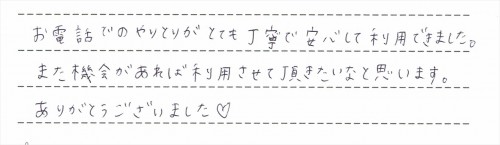 お電話でのやりとりがとても丁寧で安心して利用できました。
また機会があれば利用させて頂きたいなと思います。
ありがとうございました♡